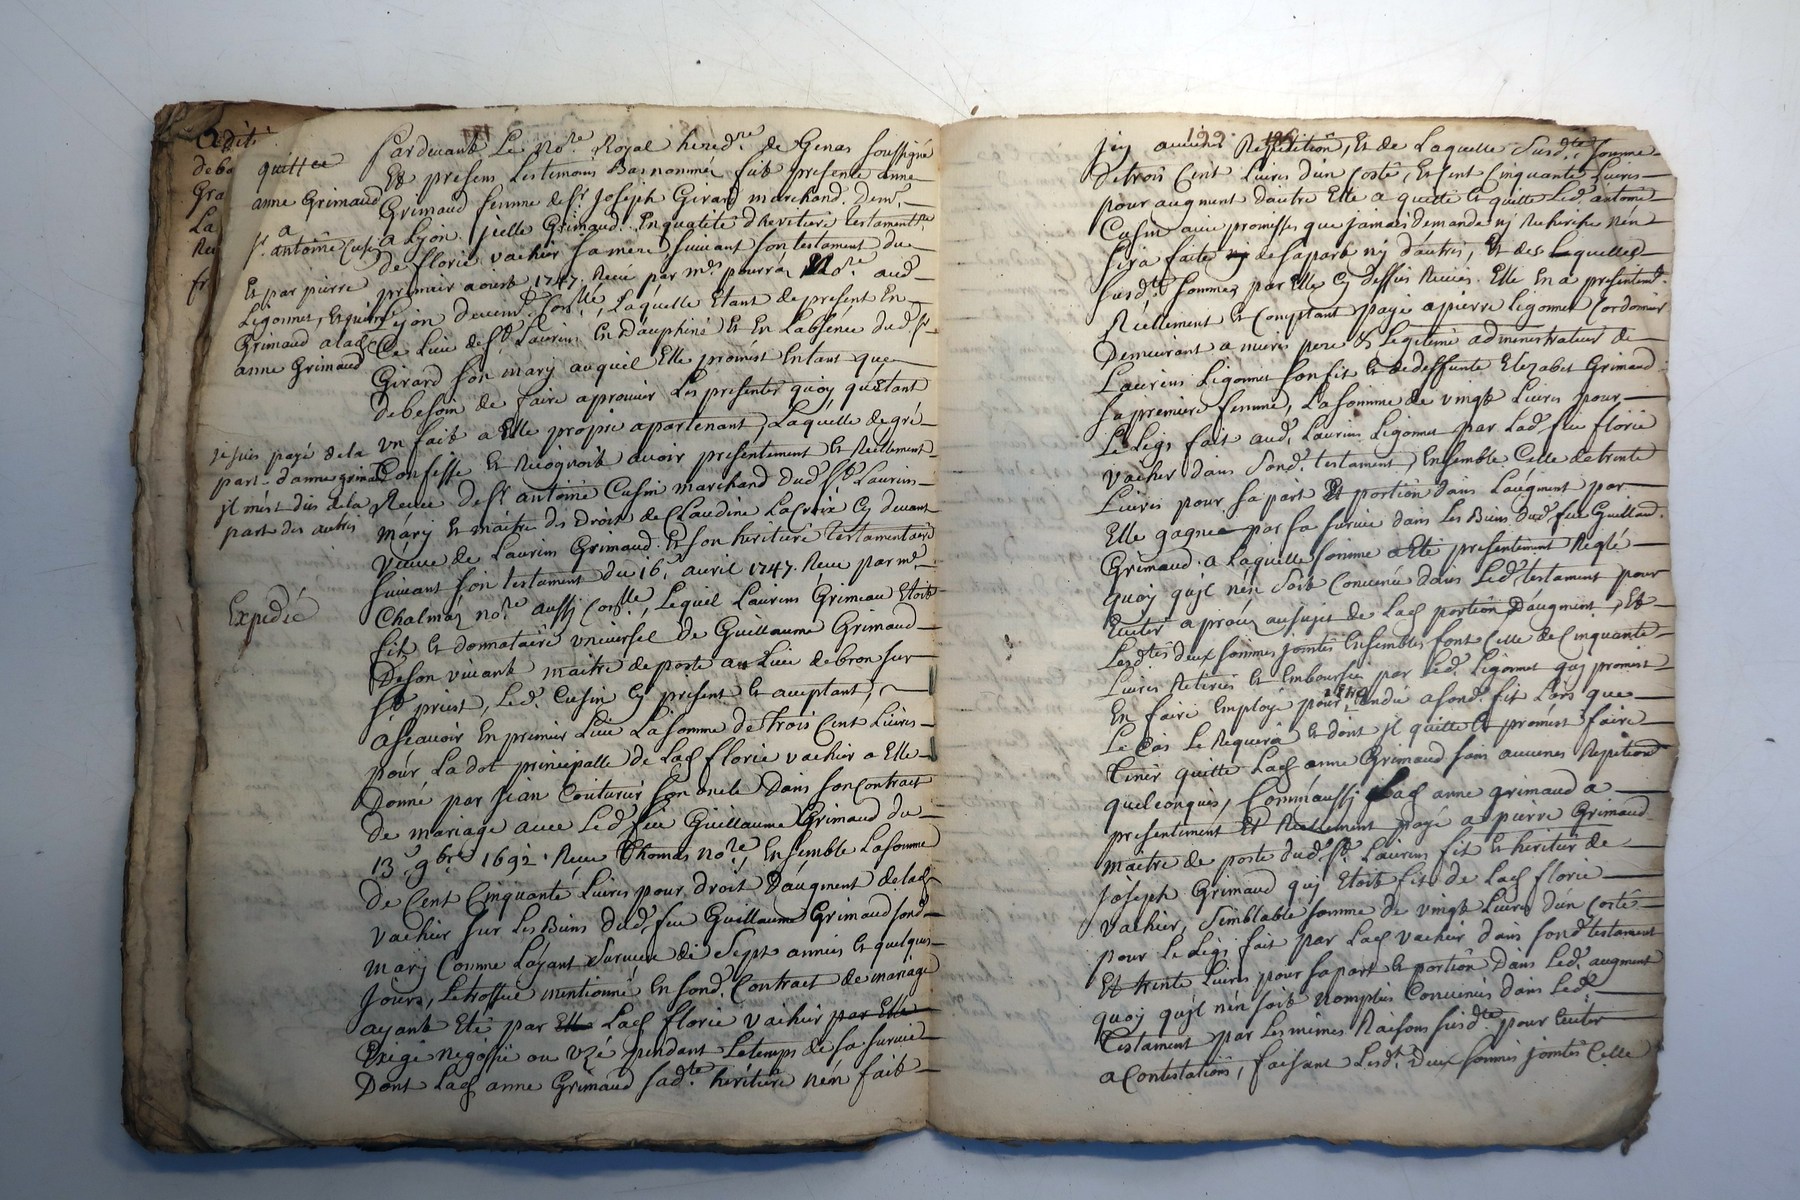 quittce
anne Grimaud
a
sr. antoine Cusin
Et par pierre
Ligonnet, Et quitte
Grimaud a lad
anne Grimaud
je suis payé de la
part d'anne grimaud
jl m'est dus de la
part des autres
Expedié
Pardevant Le Nore. Royal hered.re de Genas soussigné
Et presens Les temoins Bas nommés fut presente anne
Grimaud femme de sr. Joseph Girard marchand. Dem.t
a Lyon. jcelle Grimaud. En qualité d'heritiere testament.re
de florie vachier sa mere, suivant son testament du
premier aoust 1747. Receu par me. pourra Nore. aud
Lyon deuem.t Con.lle, Laquelle Etant de present En
Ce Lieu de st. Laurens En Dauphiné Et En L'absence dud. sr.
Girard son mary auquel Elle promest En tant que
de besoin de faire aprouver Les presentes quoy qu'Etant
un fait a Elle propre apartenant, Laquelle de gré
Confesse Et Recognoit avoir presentement Et Reellement
Receu de sr. antoine Cusin marchand dud. st. Laurens
mary Et maitre des Droits de Claudine Lacroix Cy devant
veuve de Laurens Grimaud. Et son heritiere testamentaire
suivant son testament du 16e. avril 1747. Receu par me.
Chalmas nore. aussy Con.lle, Lequel Laurens Grimeau Etoit
fils Et donnataire universel de Guillaume Grimaud
De son vivant maitre de poste au Lieu de bron sur
st. priest, Led. Cusin Cy present Et acceptant,
a sçavoir En premier Lieu La somme de Trois Cent Livres
pour La dot principalle de Lad. florie vachier a Elle
Donné par Jean Couturier son oncle Dans son Contract
De mariage avec Led. feu Guillaume Grimaud du
13e. 9bre 1692. Receu Thomas nore., Ensemble La somme
de Cent Cinquante Livres pour droit D'augment de Lad
vachier sur Les Biens dud. feu Guillaume Grimaud sond
mary Comme L'ayant survecu de Sept années Et quelques
Jours, Le trossel mentionné En sond. Contract de mariage
ayant Eté par Elle Lad. florie vachier par Elle
Exigé negossié ou Uzé pendant Le temps de sa survie
Dont Lad. anne Grimaud sad.te heritiere n'en fait
199.
jcy aucune Repetition, Et de Laquelle Susd.te somme
de trois Cent Livres d'un Costé, Et Cent Cinquante Livres
pour augment d'autre Elle a quitté Et quitte Led. antoine
Cusin avec promesses que jamais demande ny Recherche n'en
sera faite ny de sa part ny d'autres, Et des Lequelles
susd.tes sommes par Elle Cy dessus Receues. Elle En a presentem.t
Réellement Et Comptant payé a pierre Ligonnet Cordonnier
Demeurant a mures pere & Legitime administrateur de
Laurens Ligonnet son fils Et de deffunte Elizabet Grimaud
sa premiere femme, La somme de vingt Livres pour
Le Legs fait aud. Laurens Ligonnet par Lad. feu florie
vachier dans sond. testament, Ensemble Celle de trente
Livres pour sa part Et portion dans L'augment par
Elle gagnée par sa survie dans Les Biens dud. feu Guillaud.
Grimaud. a Laquelle somme a Eté presentement Reglé
quoy qu'jl n'en soit Convenu dans Led. testament pour
Eviter a procés au sujet de Lad. portion d'augment, Et
Lesd.tes deux sommes jointes Ensembles font Celle de Cinquante
Livres Retirées Et Emboursées par Led. Ligonnet qui promest
En faire Employe pour Etre Rendu a sond. fils Lors que
Le Cas Le Requera Et dont jl quitte Et promest faire
Tenir quitte Lad. anne Grimaud sans aucunes Repetition
quelconques, Comm'aussy Lad. anne grimaud a
presentement Et Reellement payé a pierre Grimaud
maitre de poste dud. st. Laurens fils Et heritier de
Joseph Grimaud qui Etoit fils de Lad. florie
vachier, Semblable somme de vingt Livres d'un Costé
pour Le Legs fait par Lad. vachier dans sond. testament
Et trente Livres pour sa part Et portion Dans Led. augment
quoy qu'jl n'en soit non plus Convenus dans Led.
Testament par Les mêmes Raisons susd.tes pour Eviter
a Contestations, faisant Lesd.t Deux sommes jointes Celle